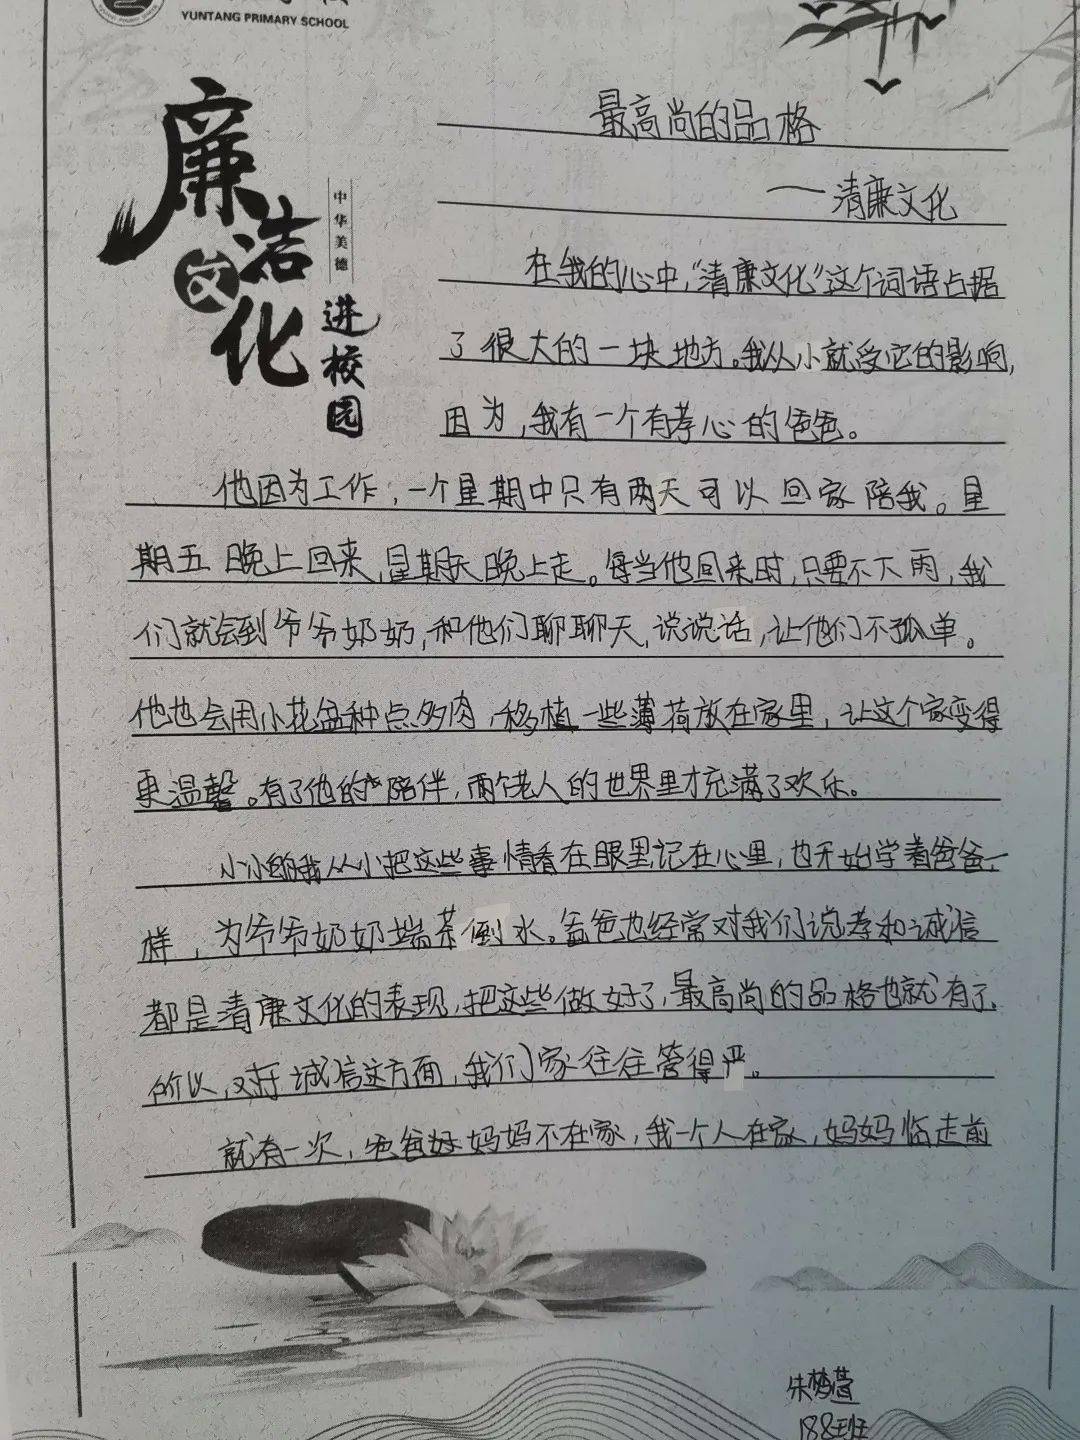 YUNTANG PRIMARY SCHOOL
廉洁文化
中华美德
进校园
最高尚的品格
——清廉文化
在我的心中，“清廉文化”这个词语占据
了很大的一块地方。我从小就受它的影响，
因为，我有一个有孝心的爸爸。
他因为工作，一个星期中只有两天可以回家陪我。星
期五晚上回来，星期天晚上走。每当他回来时，只要不下雨，我
们就会到爷爷奶奶，和他们聊聊天，说说话，让他们不孤单。
他也会用小花盆种点多肉，移植一些薄荷放在家里，让这个家变得
更温馨。有了他的陪伴，两个老人的世界里才充满了欢乐。
小小的我从小把这些事情看在眼里记在心里，也开始学着爸爸一
样，为爷爷奶奶端茶倒水。爸爸也经常对我们说孝和诚信
都是清廉文化的表现，把这些做好了，最高尚的品格也就有了。
所以，对于诚信这方面，我们家往往管得严。
就有一次，爸爸妈妈不在家，我一个人在家，妈妈临走前
朱梦萱
188班